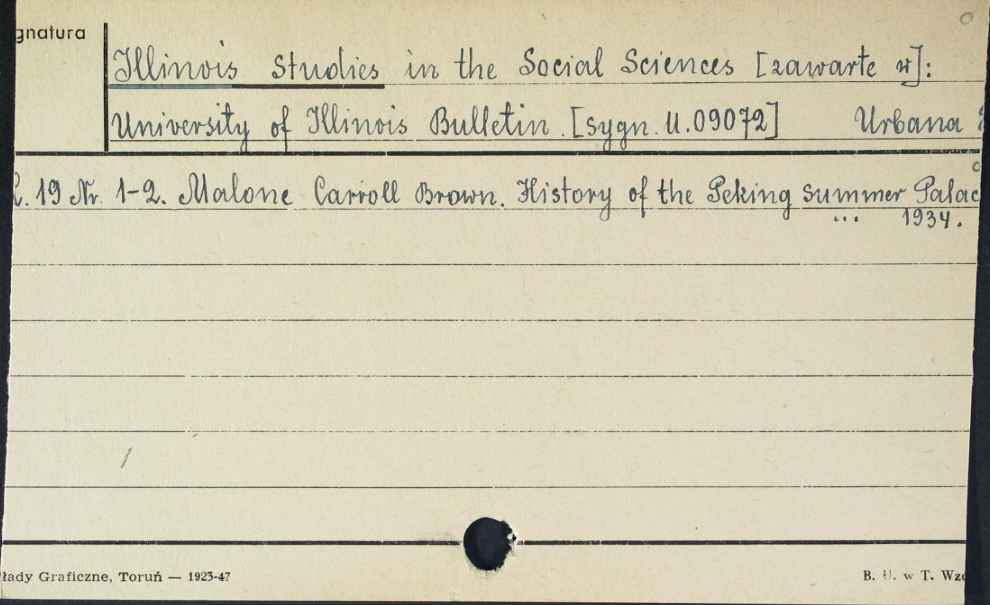 gnatura
Illinois Studies in the Social Sciences [zawarte w]:
University of Illinois Bulletin. [sygn. U.09072] Urbana
R. 19 Nr. 1-2. Malone Carroll Brown. History of the Peking summer Palac
... 1934.
łady Graficzne, Toruń — 1923-47
B. U. w T. Wzo